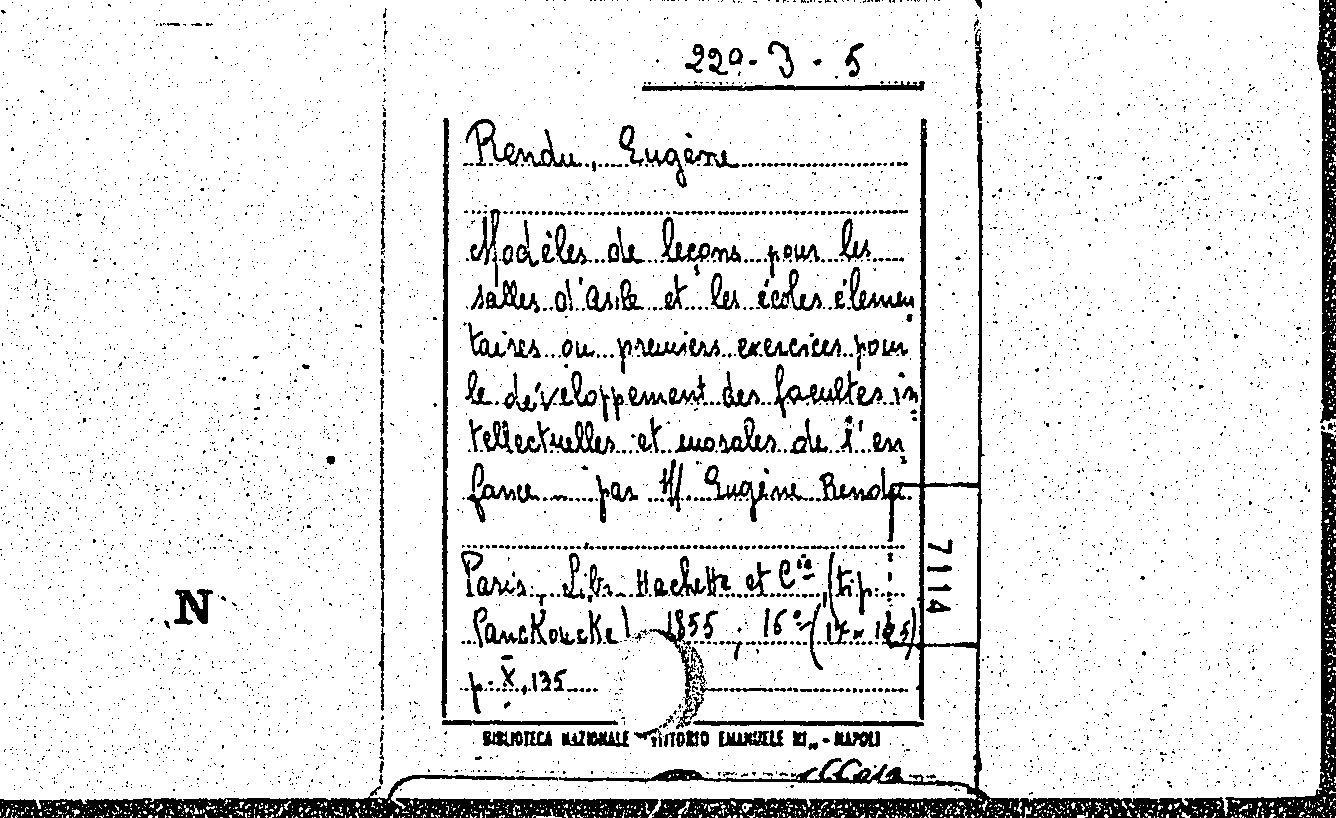 220-J-5
Rendu, Eugène
Modèles de leçons pour les
salles d'asile et les écoles élemen
taires ou premiers exercices pour
le développement des facultes in
tellectuelles et morales de l'en
fance - par M/ Eugène Rendu
Paris, Libr. Hachette et Cie (tip.
Panckoucke) 1855, 16°
p. X, 135
7114
N
BIBLIOTECA NAZIONALE VITTORIO EMANUELE III - NAPOLI